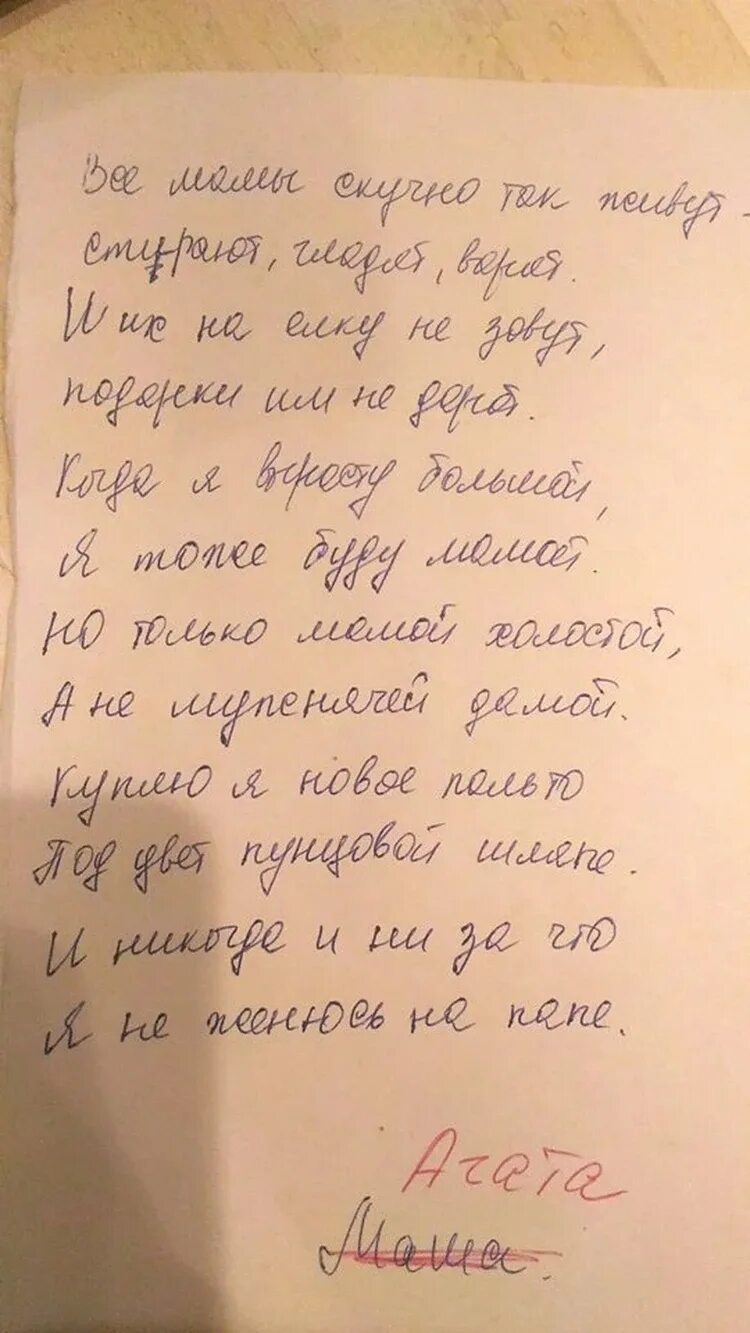 Все мамы скучно так живут -
стирают, гладят, варят.
И их на елку не зовут,
подарки им не дарят.
Когда я вырасту большой,
Я тоже буду мамой.
НО только мамой холостой,
А не мупенячей дамой.
Куплю я новое пальто
Под цвет пунцовой шляпе.
И никогда и ни за что
Я не женюсь на папе.
Агата
Маша.